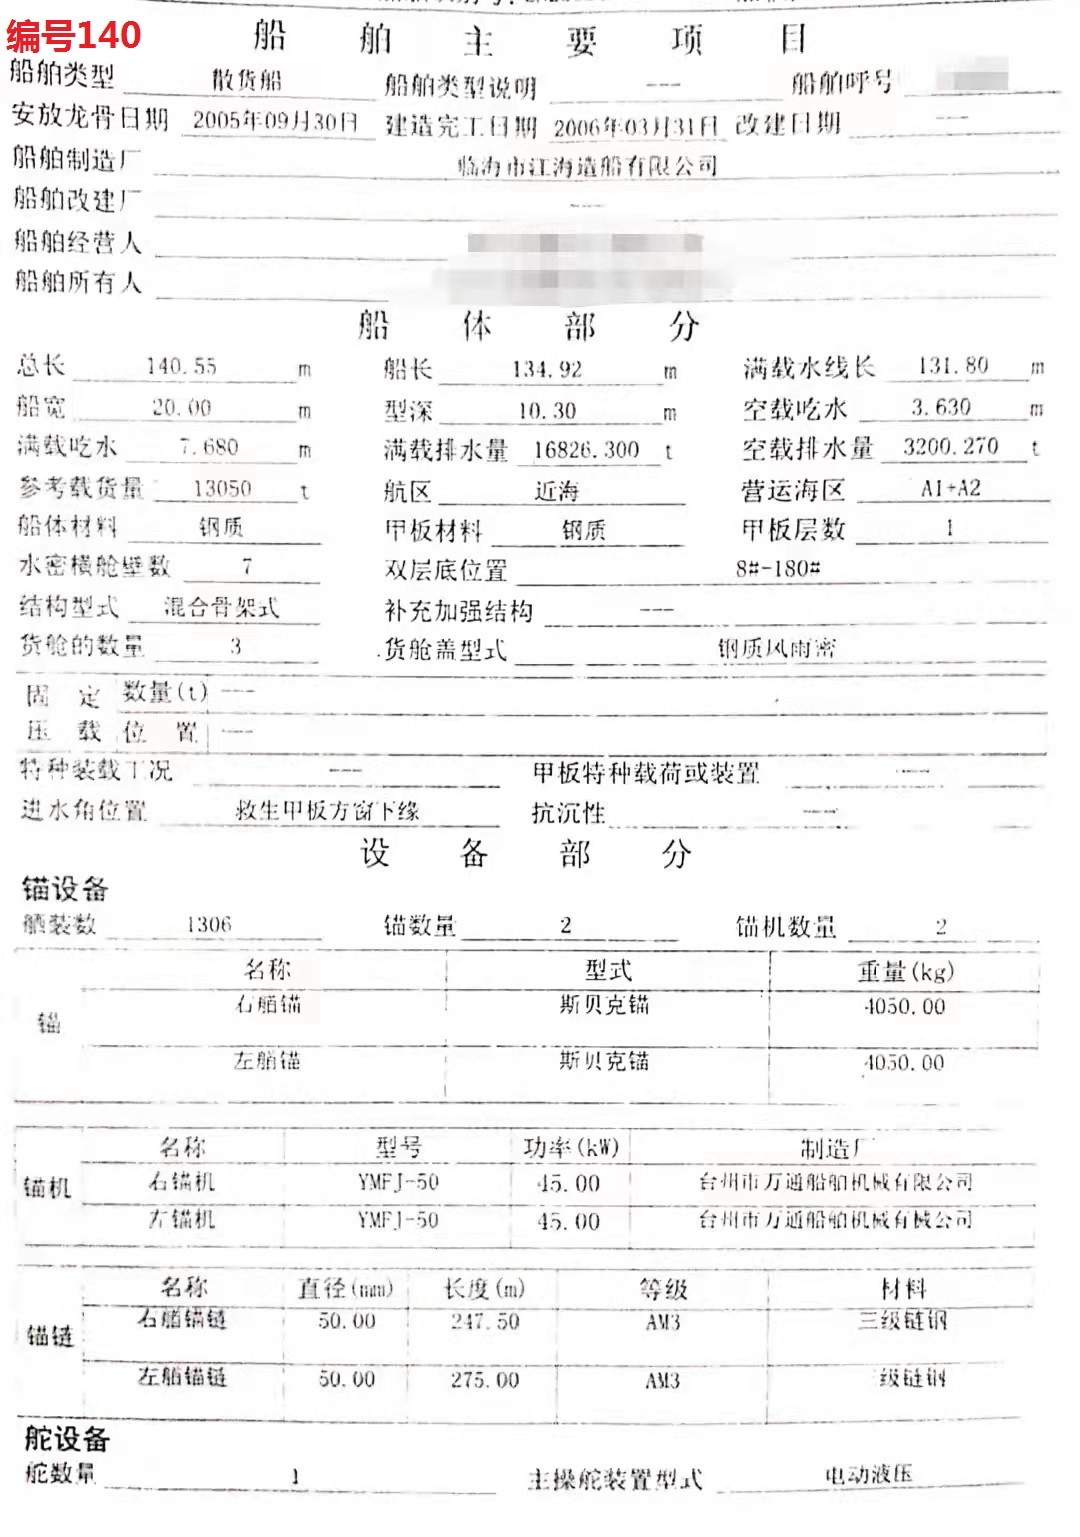 编号140
船舶主要项目
船舶类型 散货船 船舶类型说明 --- 船舶呼号
安放龙骨日期 2005年09月30日 建造完工日期 2006年03月31日 改建日期 ---
船舶制造厂 临海市江海造船有限公司
船舶改建厂 ---
船舶经营人
船舶所有人
船体部分
总长 140.55 m 船长 134.92 m 满载水线长 131.80 m
船宽 20.00 m 型深 10.30 m 空载吃水 3.630 m
满载吃水 7.680 m 满载排水量 16826.300 t 空载排水量 3200.270 t
参考载货量 13050 t 航区 近海 营运海区 A1+A2
船体材料 钢质 甲板材料 钢质 甲板层数 1
水密横舱壁数 7 双层底位置 8#-180#
结构型式 混合骨架式 补充加强结构 ---
货舱的数量 3 货舱盖型式 钢质风雨密
固定 数量(t) ---
压载 位置 ---
特种装载工况 --- 甲板特种载荷或装置 ---
进水角位置 救生甲板方窗下缘 抗沉性 ---
设备部分
锚设备
舾装数 1306 锚数量 2 锚机数量 2
名称 型式 重量(kg)
右艏锚 斯贝克锚 4050.00
锚
左艏锚 斯贝克锚 4050.00
名称 型号 功率(kW) 制造厂
锚机 右锚机 YMFJ-50 45.00 台州市万通船舶机械有限公司
左锚机 YMFJ-50 45.00 台州市万通船舶机械有械公司
名称 直径(mm) 长度(m) 等级 材料
右艏锚链 50.00 247.50 AM3 三级链钢
锚链
左艏锚链 50.00 275.00 AM3 级链钢
舵设备
舵数量 1 主操舵装置型式 电动液压